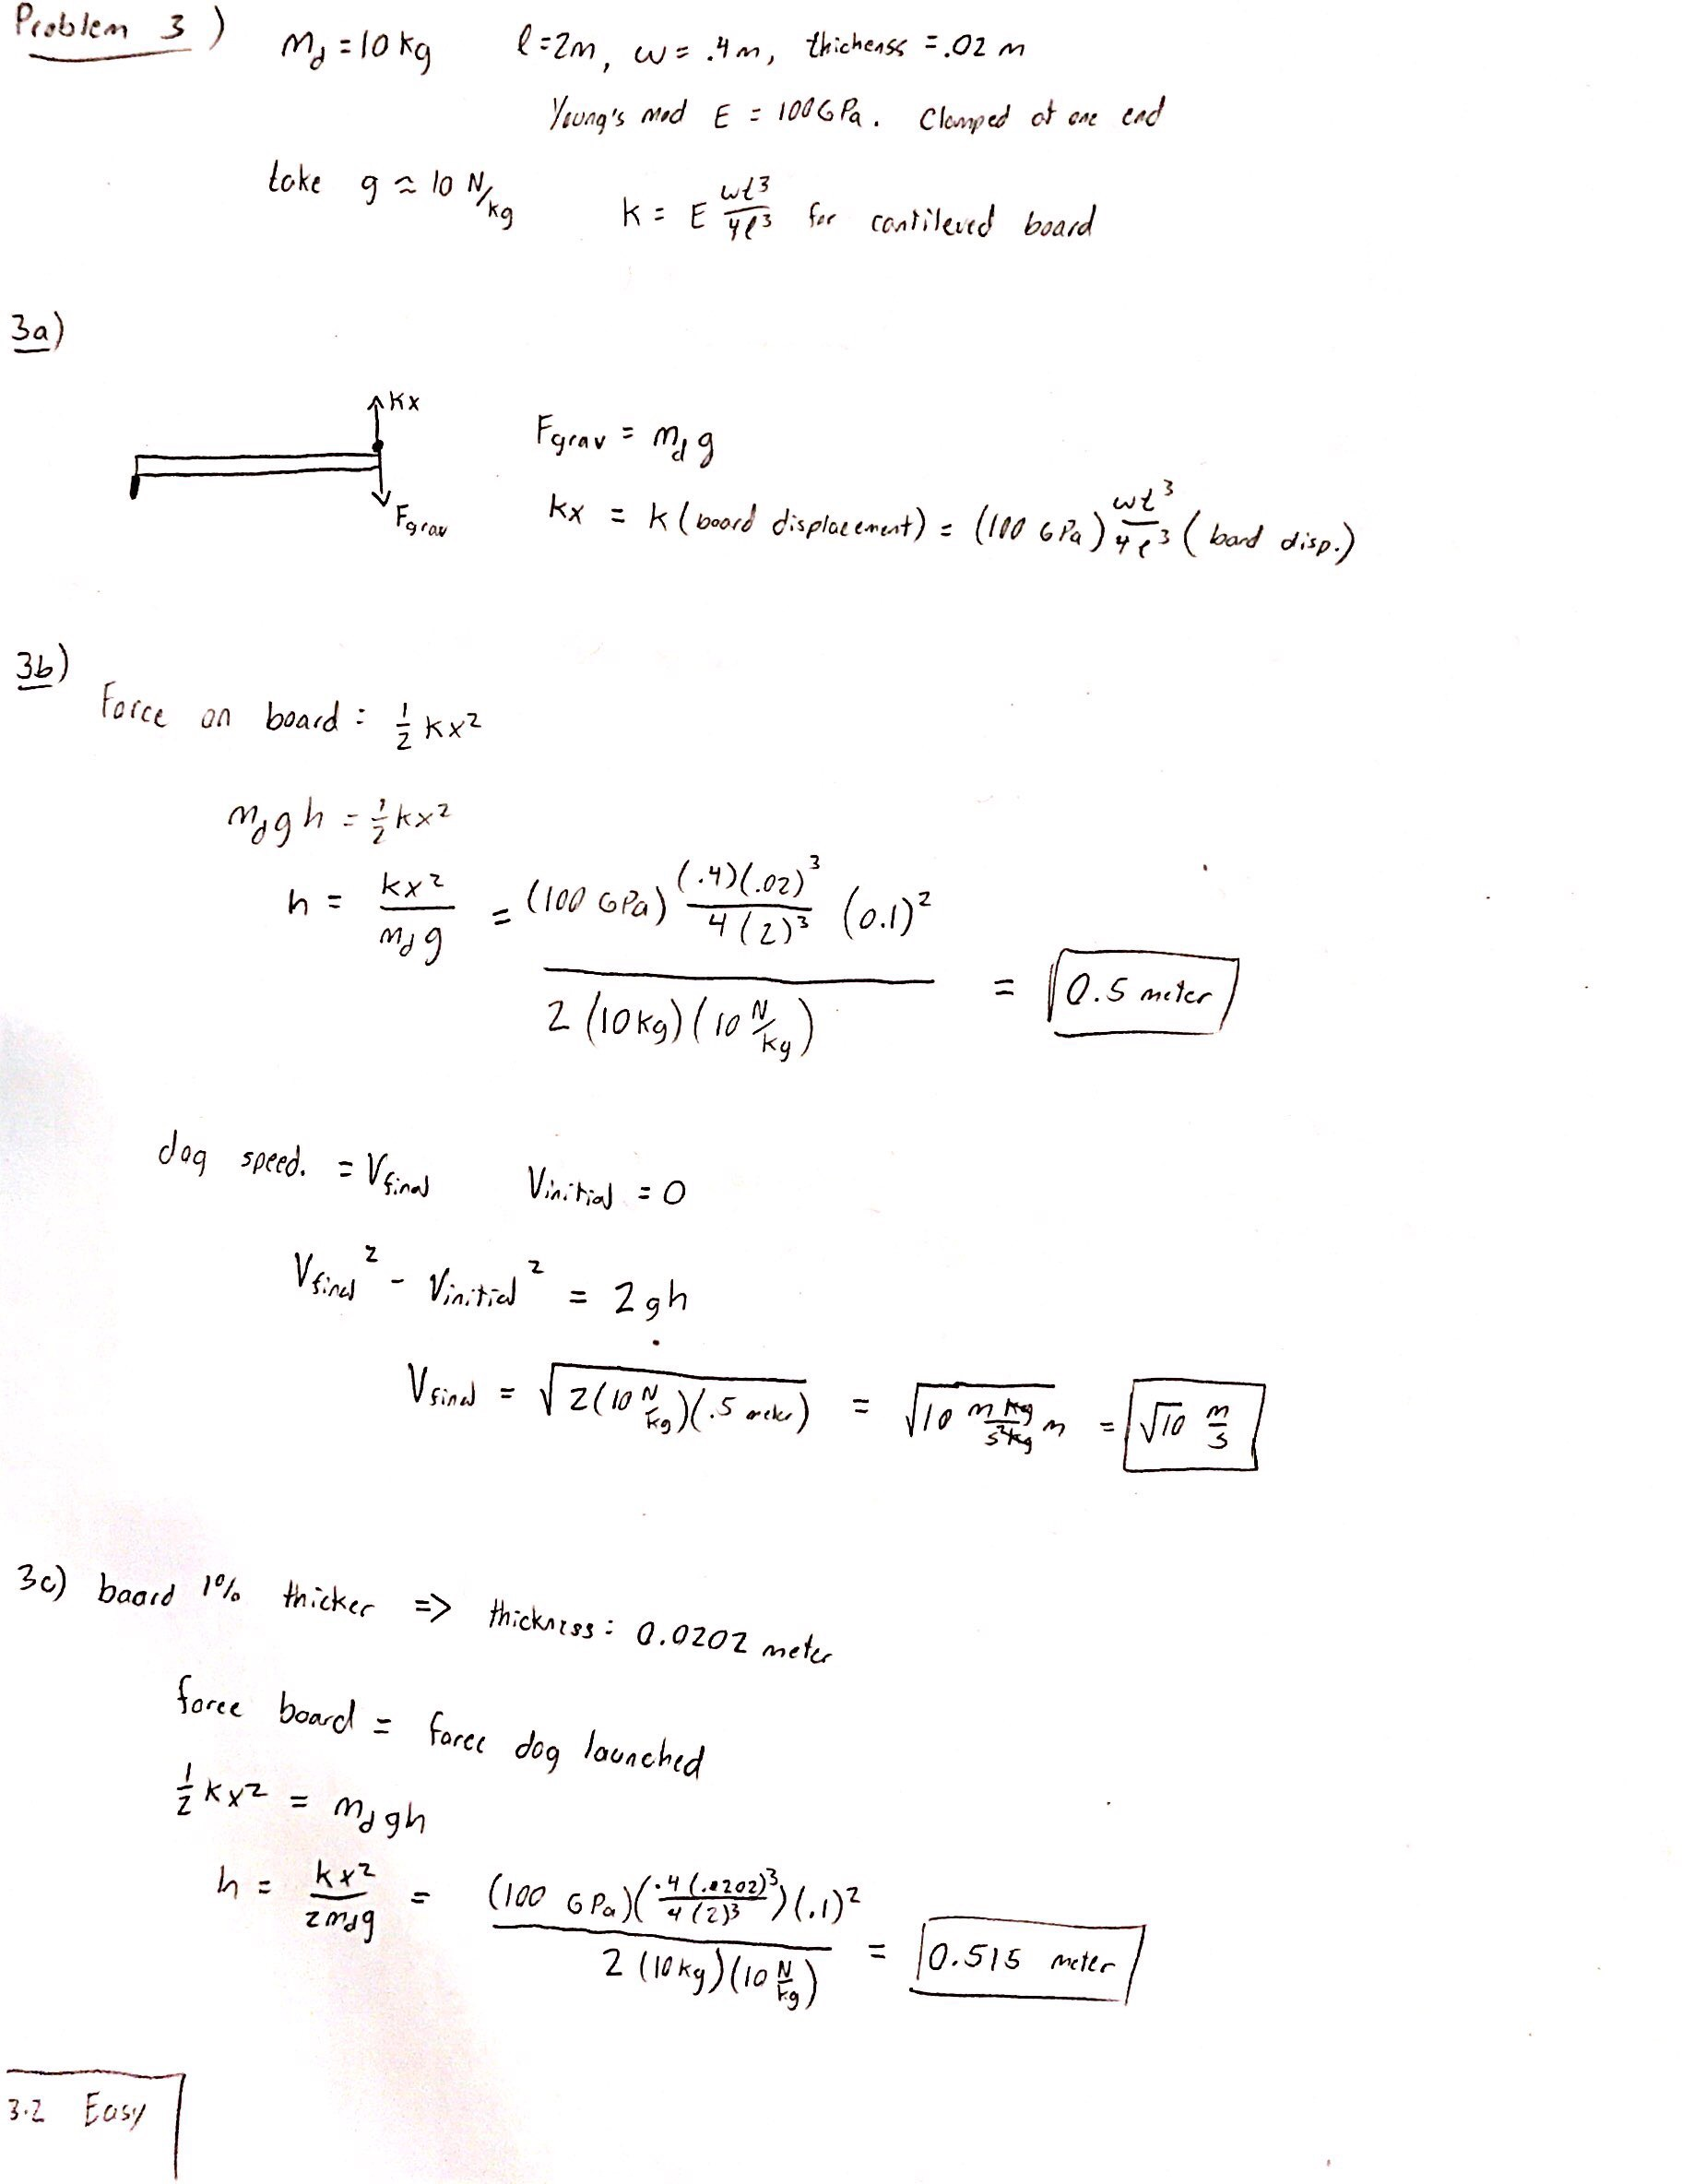 Problem 3) m_d = 10 kg l = 2m, w = .4 m, thichenss = .02 m
Young's mod E = 100 GPa. Clamped at one end
take g ≈ 10 N/kg k = E wt³/4l³ for cantileved board
3a)
kx
F_grav
F_grav = m_d g
kx = k (board displacement) = (100 GPa) wt³/4l³ (board disp.)
3b)
Force on board: 1/2 kx²
m_d g h = 1/2 kx²
h = kx²/m_d g = (100 GPa) (.4)(.02)³/4(2)³ (0.1)² / 2 (10 kg)(10 N/kg) = 0.5 meter
dog speed. = V_final V_initial = 0
V_final² - V_initial² = 2gh
V_final = √2(10 N/kg)(.5 meter) = √10 m kg/s² kg m = √10 m/s
3c) board 1% thicker => thickness: 0.0202 meter
force board = force dog launched
1/2 kx² = m_d gh
h = kx²/2m_d g = (100 GPa)(.4(.0202)³/4(2)³)(.1)² / 2 (10 kg)(10 N/kg) = 0.515 meter
3.2 Easy